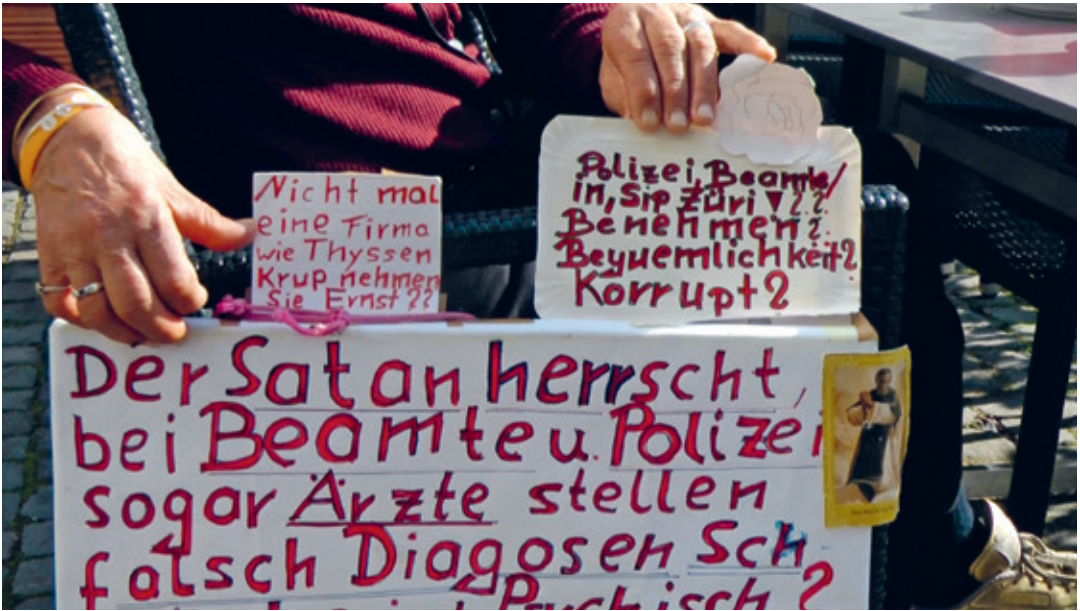 Nicht mal
eine Firma
wie Thyssen
Krup nehmen
Sie Ernst??
Polizei, Beamte/
in, Sip Züri▼??
Benehmen?
Beyuemlichkeit?
Korrupt?
Der Satan herrscht,
bei Beamte u. Polizei
sogar Ärzte stellen
falsch Diagosen Sch
Psychisch?